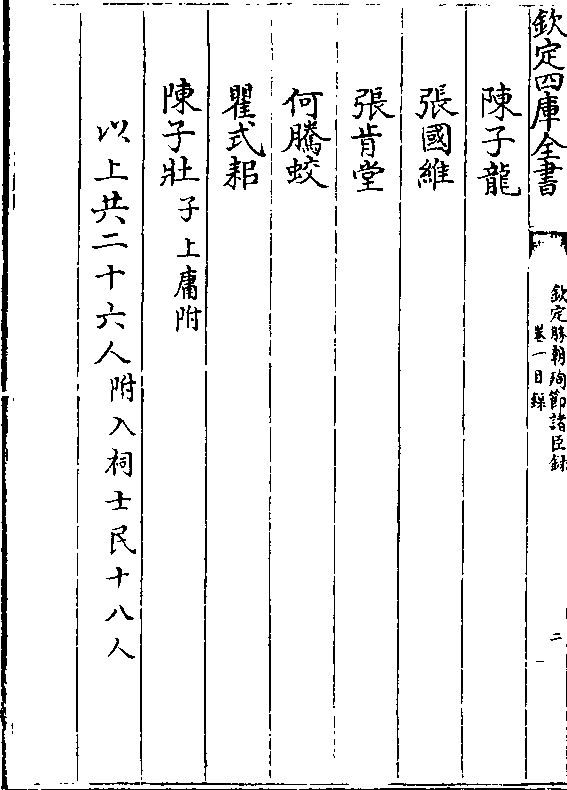 欽定四庫全書
欽定勝朝殉節諸臣錄
卷一目錄
二
陳子龍
張國維
張肯堂
何騰蛟
瞿式耜
陳子壯子上庸附
以上共二十六人附入祠士民十八人